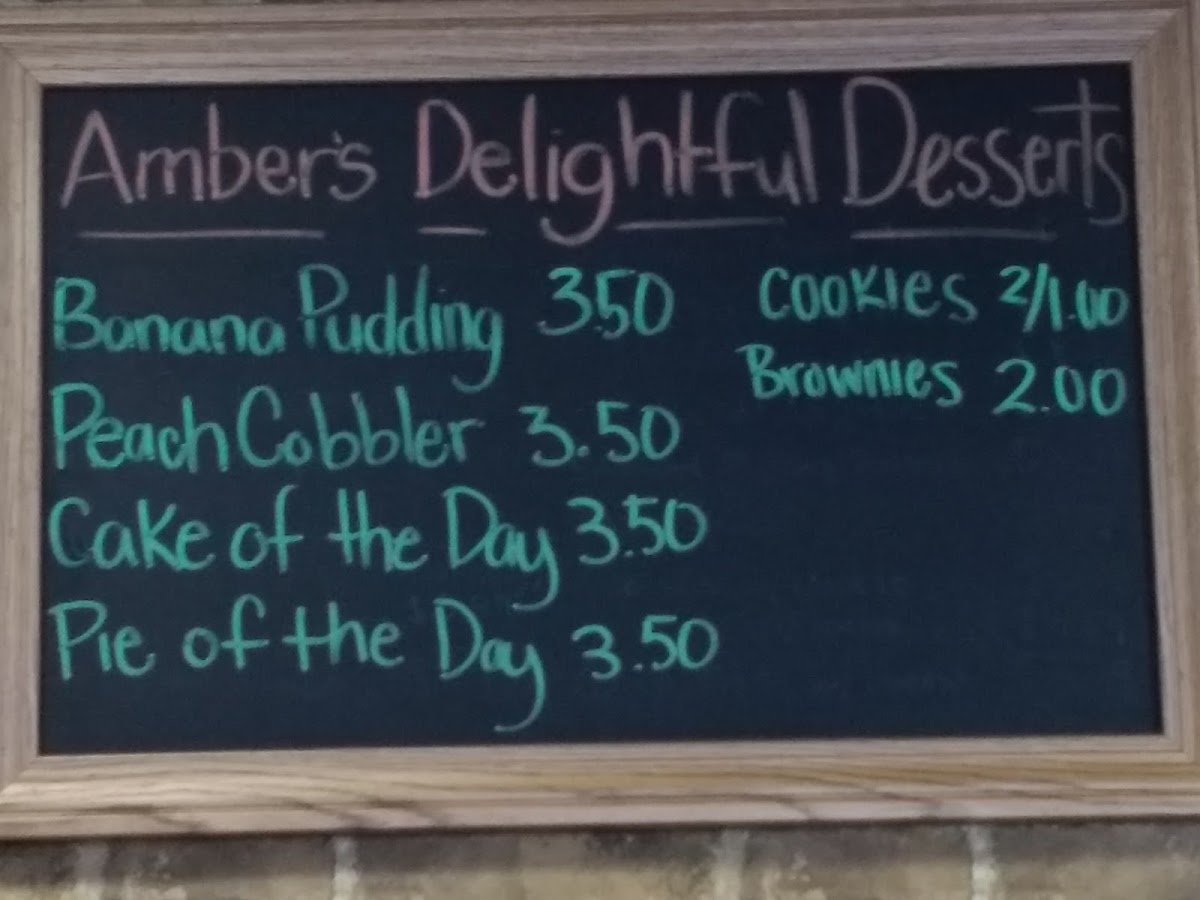 Amber's Delightful Desserts
Banana Pudding 3.50
Peach Cobbler 3.50
Cake of the Day 3.50
Pie of the Day 3.50
Cookies 2/1.00
Brownies 2.00